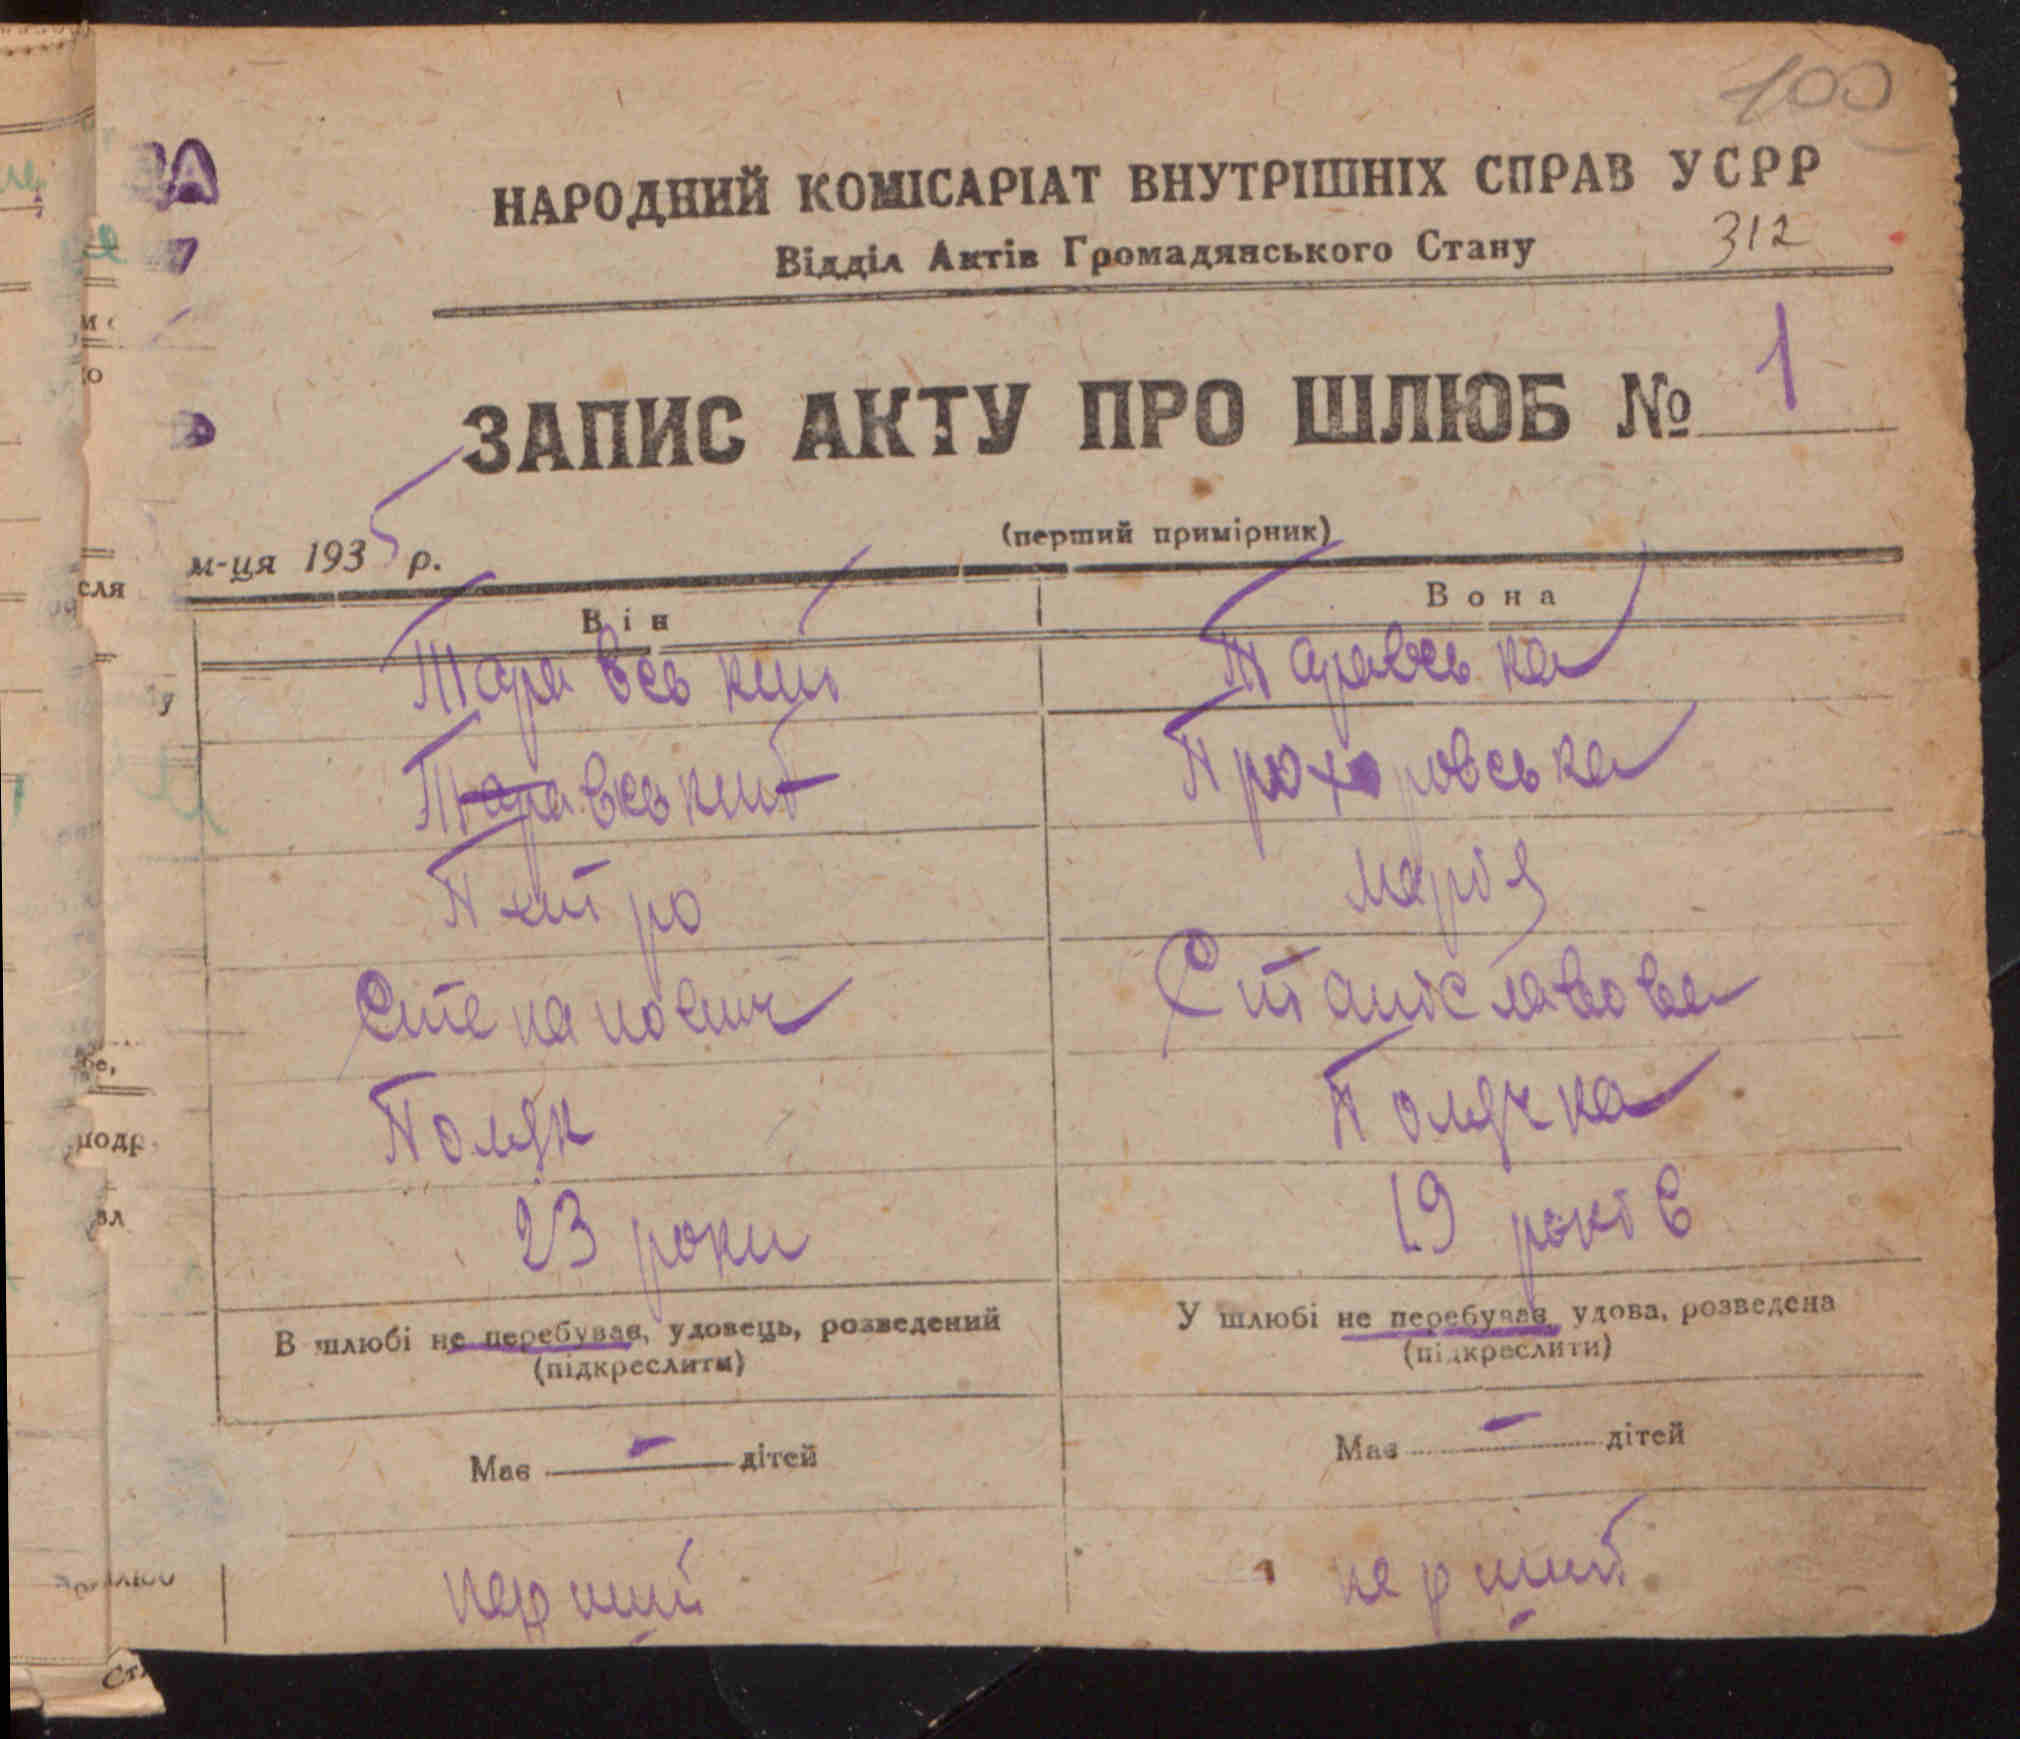 100
НАРОДНИЙ КОМІСАРІАТ ВНУТРІШНІХ СПРАВ УСРР
Відділ Актів Громадянського Стану 312
ЗАПИС АКТУ ПРО ШЛЮБ № 1
(перший примірник)
м-ця 1935 р.
Він Вона
Таравський Таравська
Таравський Прохоровська
Петро Марія
Степанович Станіславова
Поляк Полячка
23 роки 19 років
В шлюбі не перебував, удовець, розведений У шлюбі не перебував, удова, розведена
(підкреслити) (підкреслити)
Має — дітей Має — дітей
перший перший